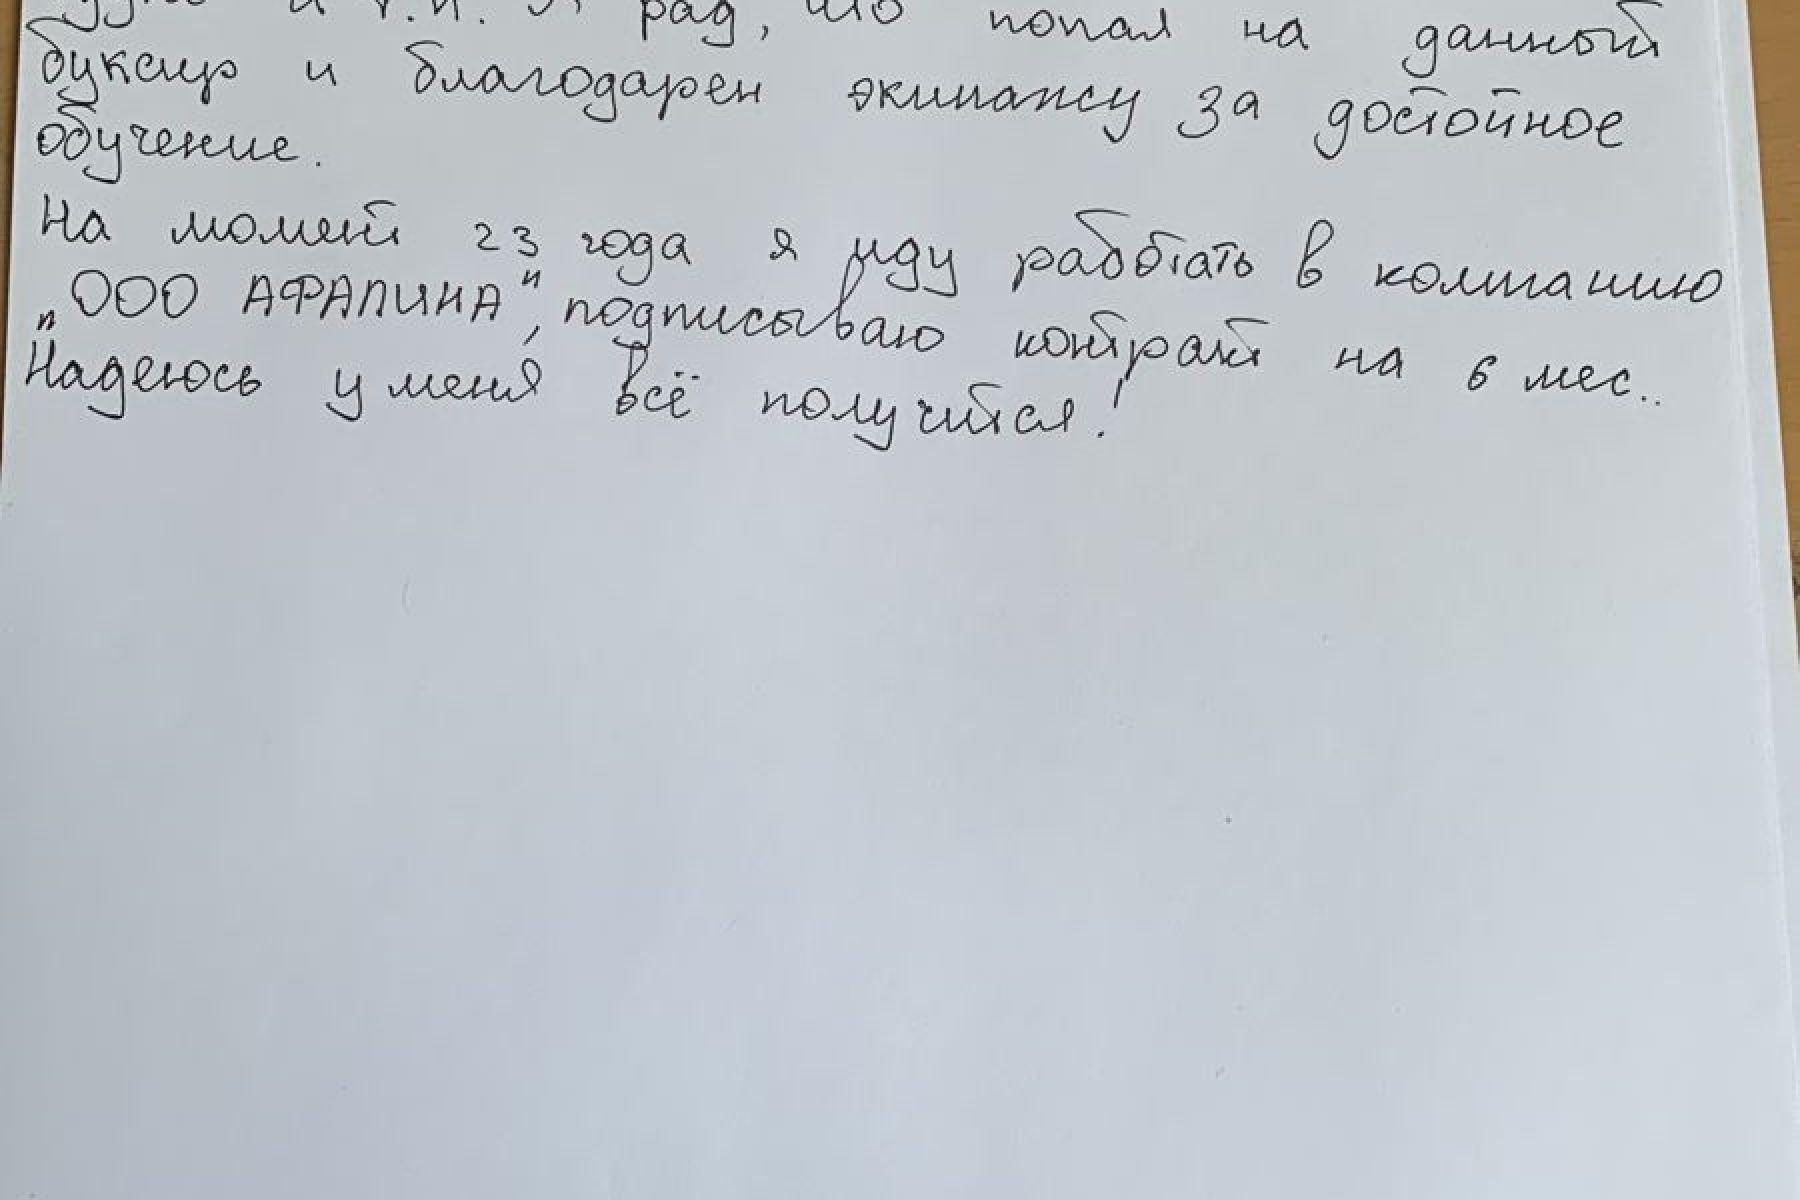 и т.п. Я рад, что попал на данный
буксир и благодарен экипажу за достойное
обучение.
На момент 23 года я иду работать в компанию
"ООО АФАЛИНА", подписываю контракт на 6 мес..
Надеюсь у меня всё получится!